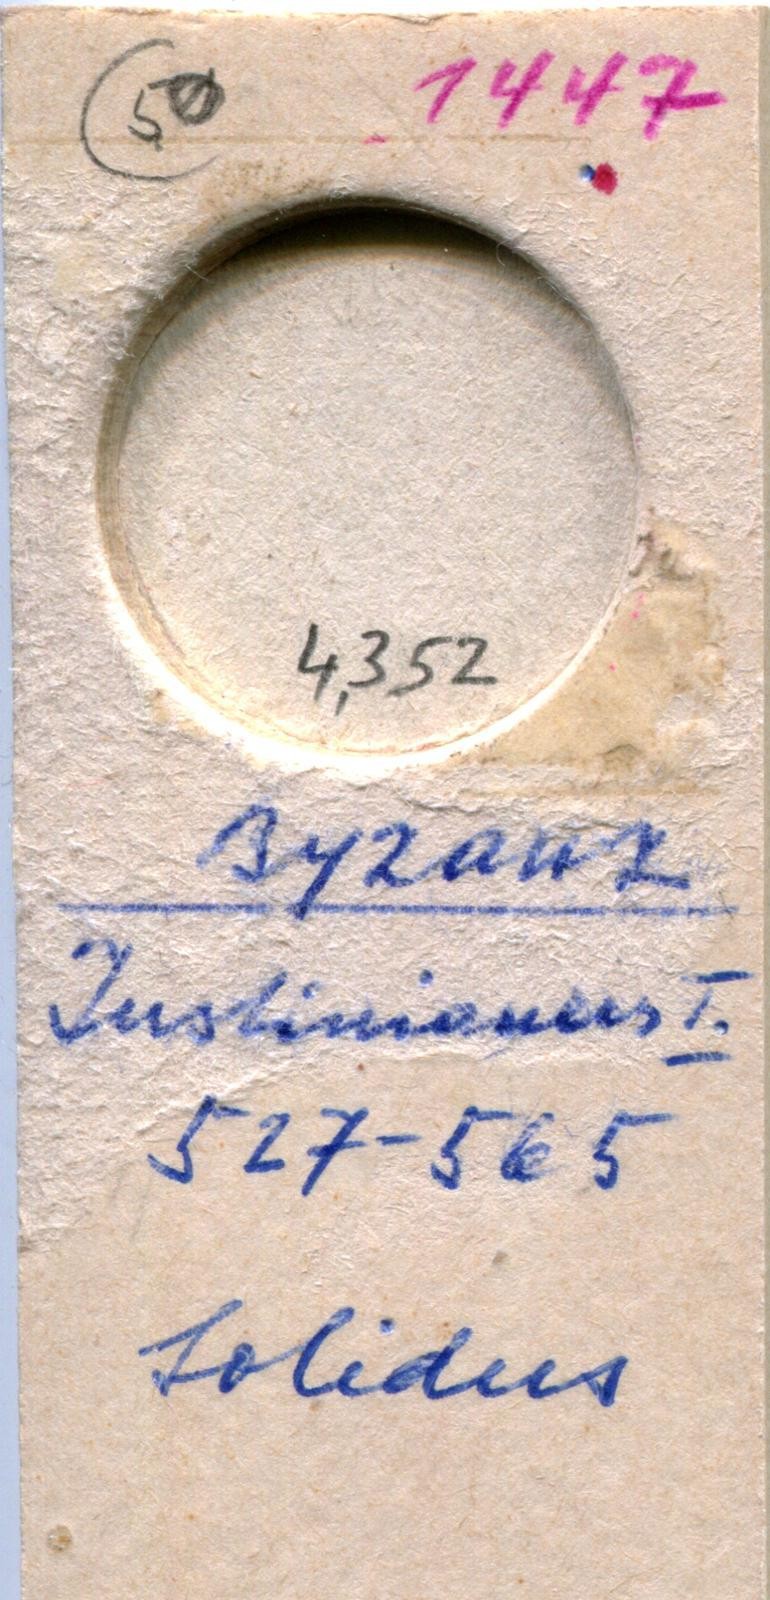 5
1447
4,352
Byzanz
Justinianus I.
527-565
Solidus